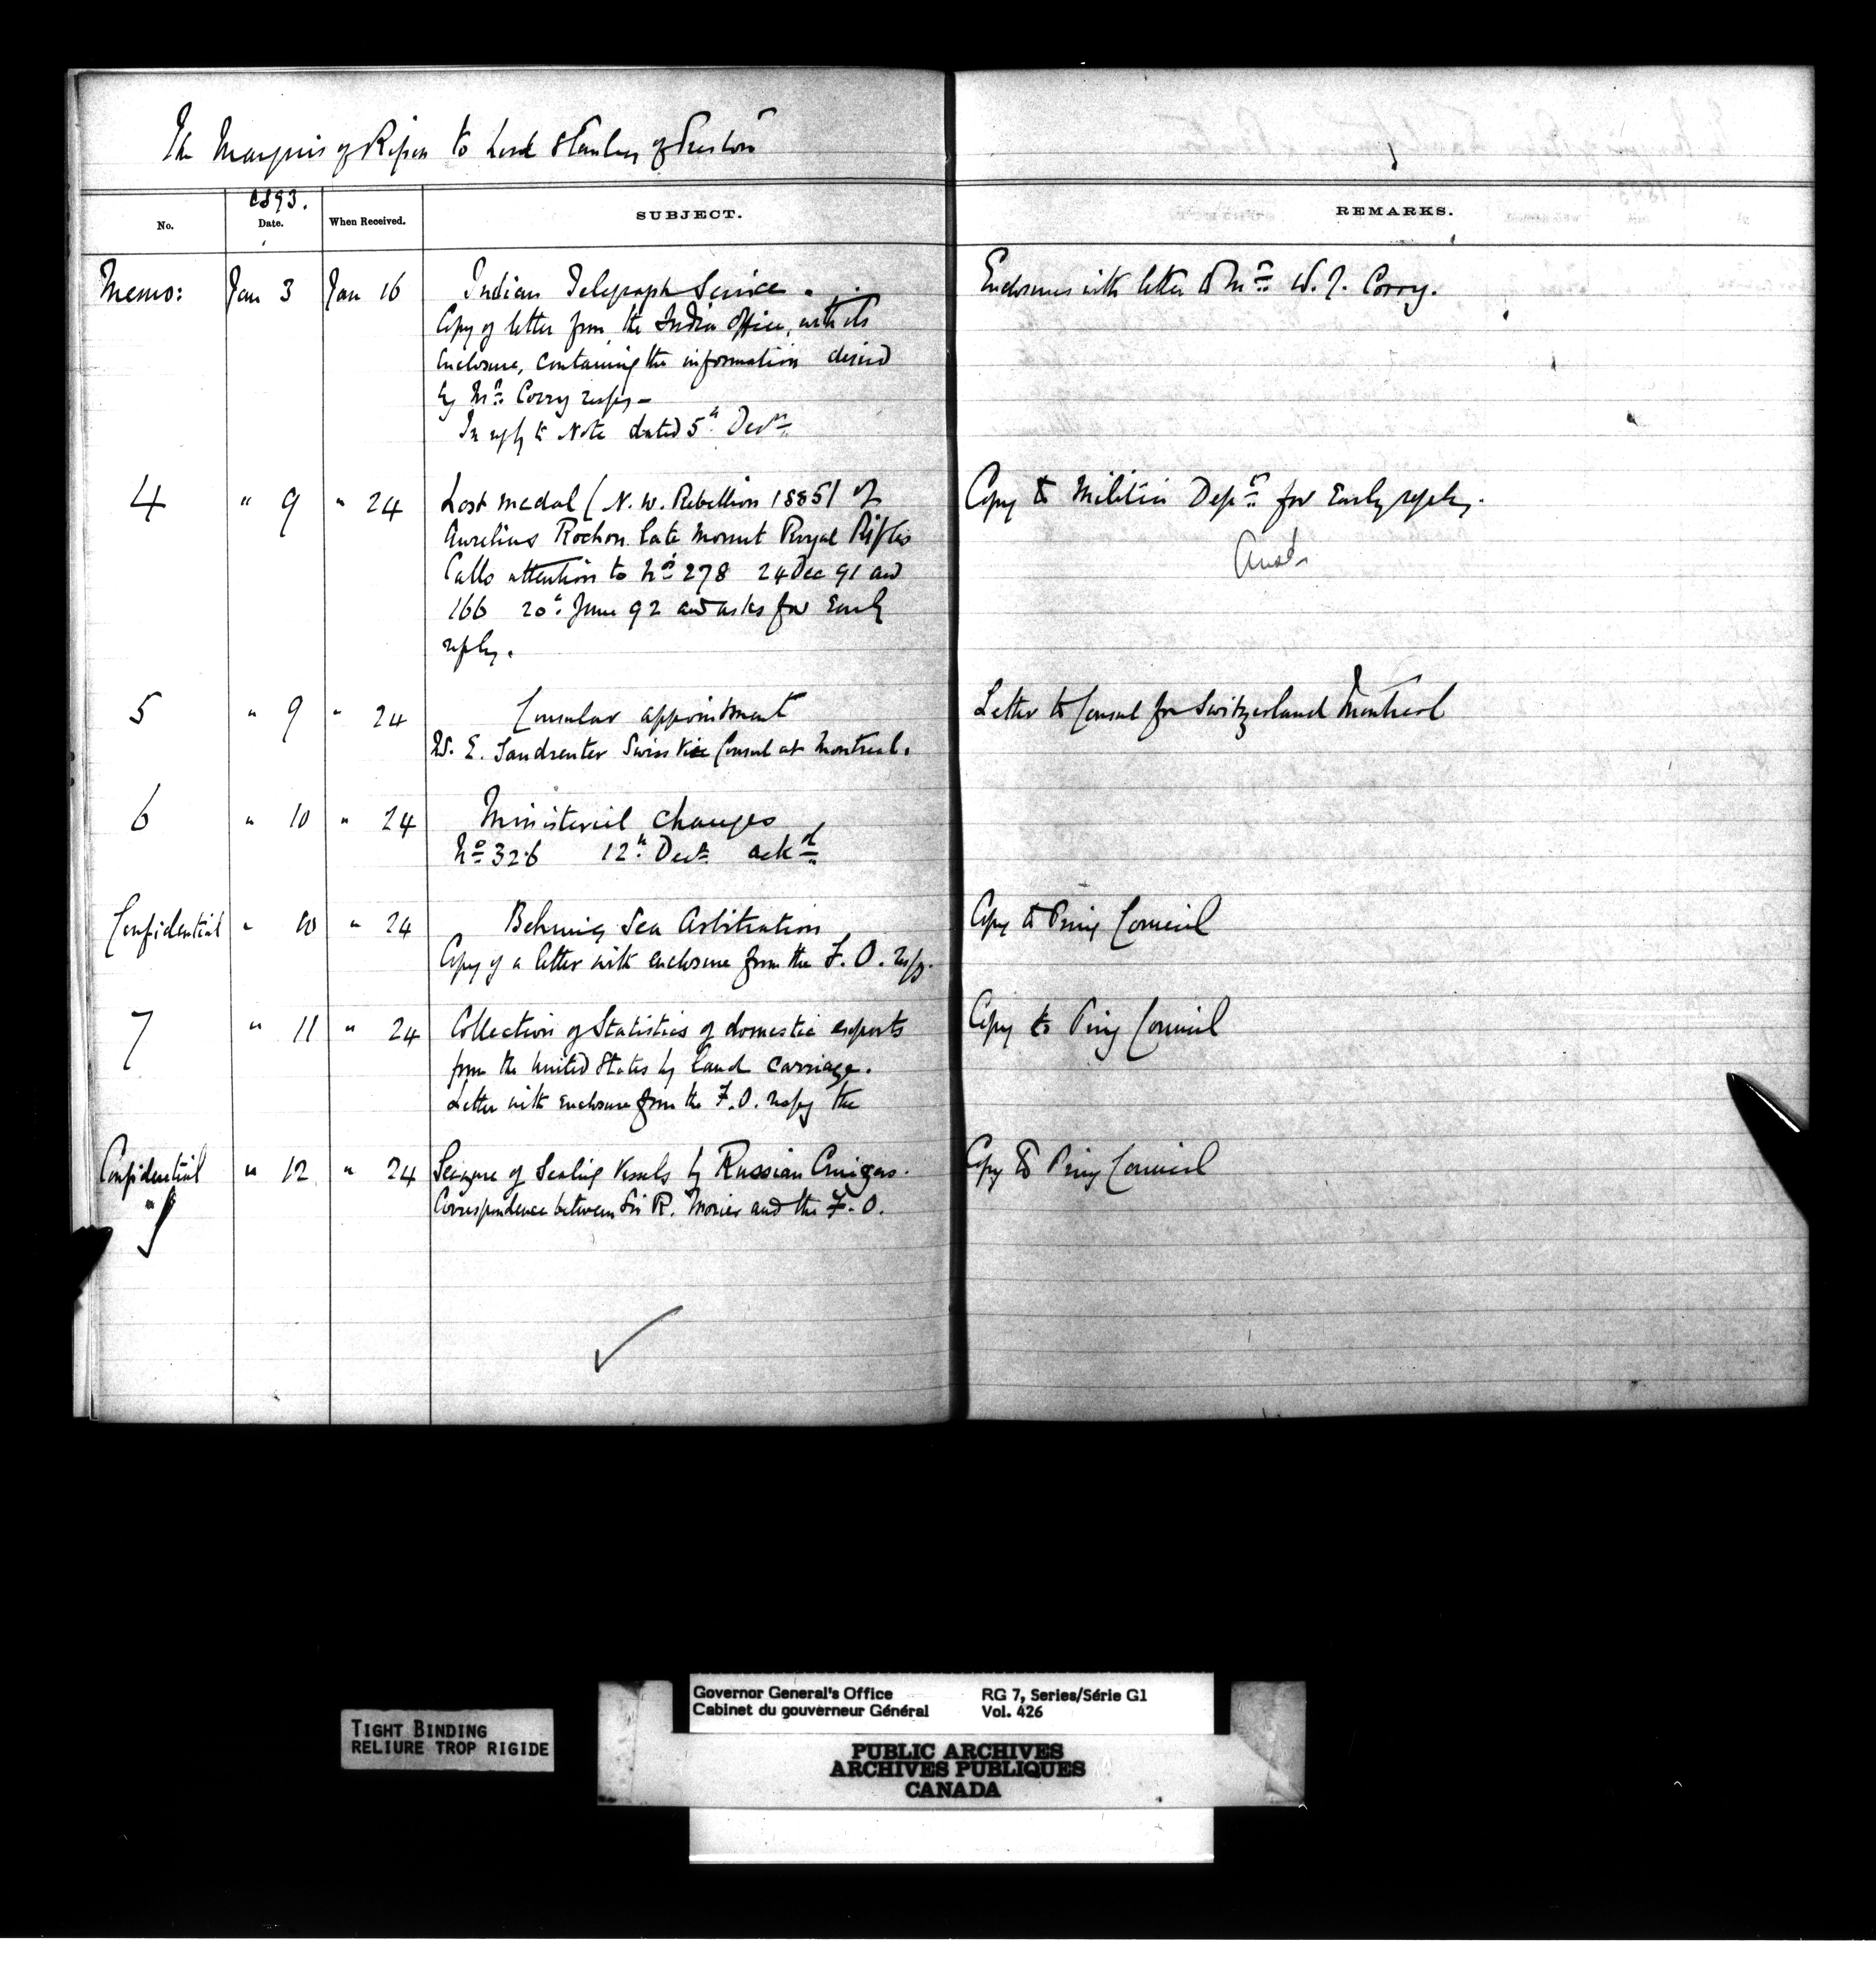 The Marquis of Ripon to Lord Stanley of Preston
1893.
No. Date. When Received. SUBJECT. REMARKS.
Memo: Jan 3 Jan 16 Indian Telegraph Service. Enclosures with letter to Mr. W. J. Corry.
Copy of letter from the India Office, with its
enclosure, containing the information desired
by Mr. Corry respg -
In reply to Note dated 5th Decr.
4 " 9 " 24 Lost medal (N. W. Rebellion 1885) of Copy to Militia Dept. for early reply.
Aurelius Rochon late Mount Royal Rifles
Ansd.
Calls attention to No 278 24 Dec 91 and
166 20th June 92 and asks for early
reply.
5 " 9 " 24 Consular appointment Letter to Consul for Switzerland Montreal
W. E. Sandreuter Swiss Vice Consul at Montreal.
6 " 10 " 24 Ministerial changes
No 326 12th Decr. ackd
Confidential " 10 " 24 Behring Sea Arbitration Copy to Privy Council
Copy of a letter with enclosure from the F. O. respg.
7 " 11 " 24 Collection of Statistics of domestic exports Copy to Privy Council
from the United States by land carriage.
Letter with enclosure from the F. O. respg the
Confidential " 12 " 24 Seizure of Sealing Vessels by Russian Cruizers. Copy to Privy Council
" Correspondence between Sir R. Morier and the F. O.
TIGHT BINDING
RELIURE TROP RIGIDE
Governor General's Office RG 7, Series/Série G1
Cabinet du gouverneur Général Vol. 426
PUBLIC ARCHIVES
ARCHIVES PUBLIQUES
CANADA